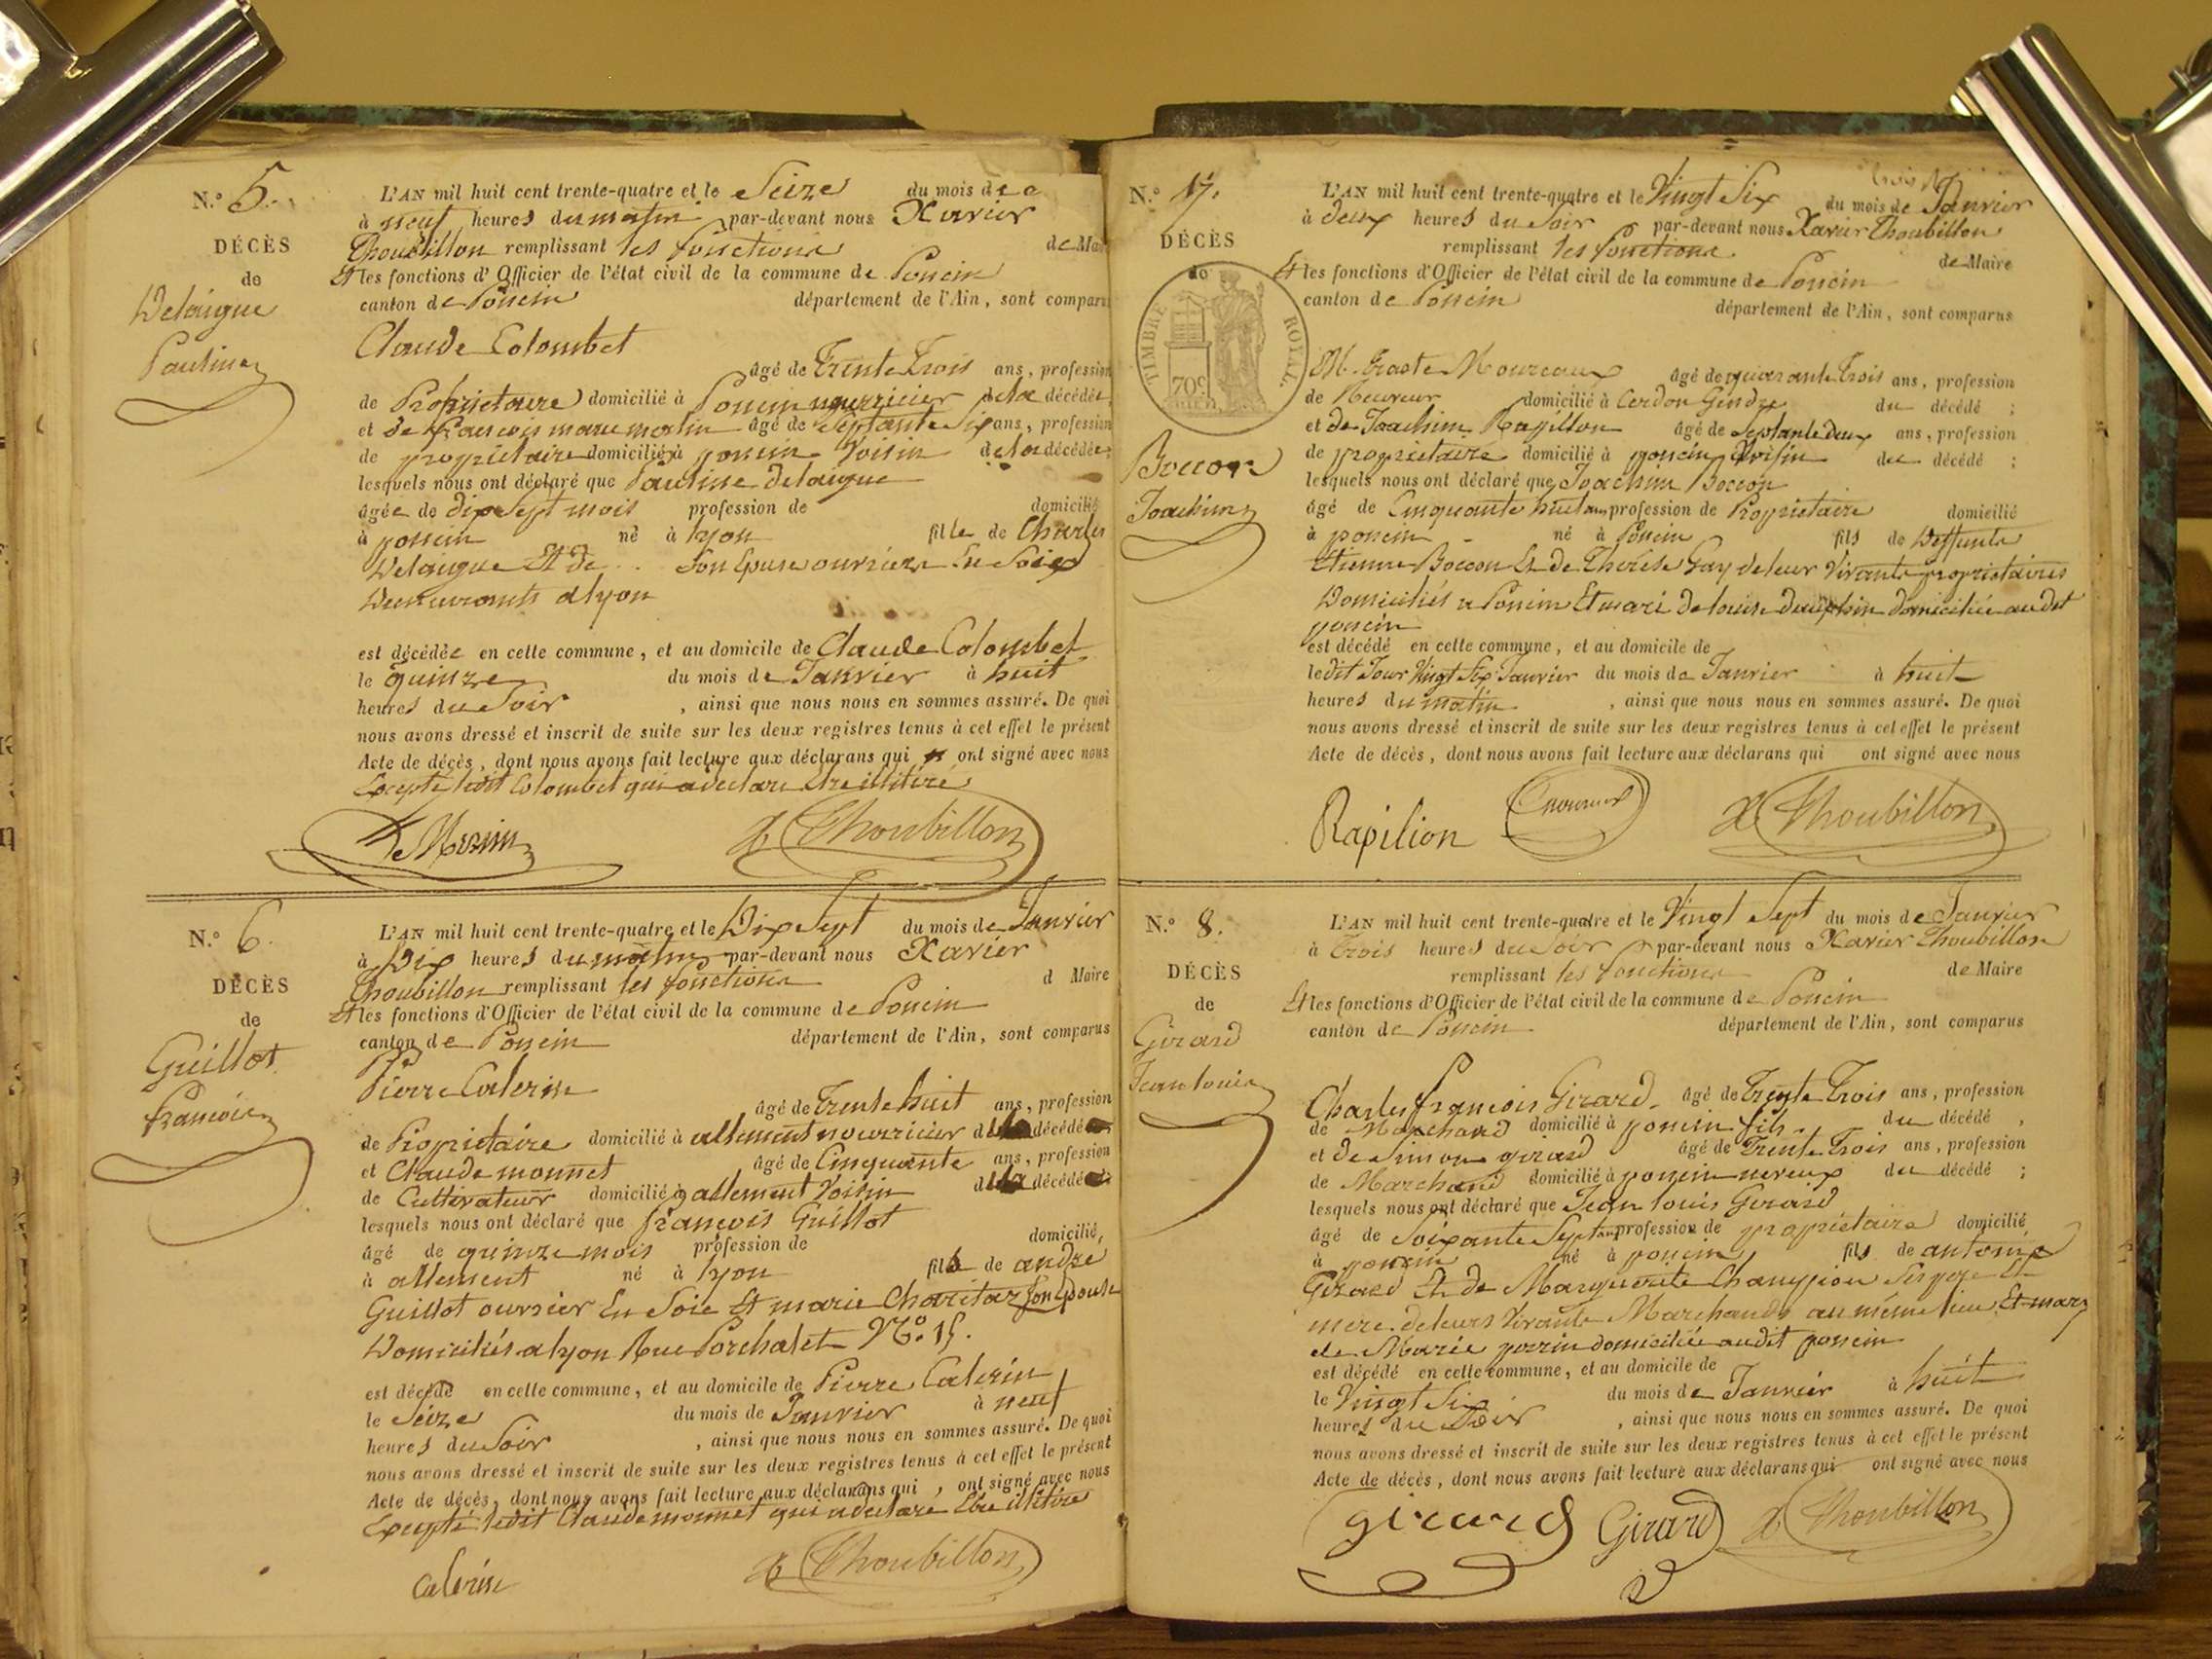 N.º 5.
DÉCÈS
de
Delaigue
Pauline
L'AN mil huit cent trente-quatre et le Seize du mois de
à neuf heures du matin par-devant nous Xavier
Thoubillon remplissant les fonctions de Mai
Et les fonctions d'Officier de l'état civil de la commune de Poncin
canton de Poncin département de l'Ain, sont compar
Claude Colombet
âgé de Trente Trois ans, profession
de Propriétaire domicilié à Poncin nourricier de la décédée,
et de françois marie merlin âgé de Septante Six ans, profession
de propriétaire domicilié à poncin Voisin de la décédée;
lesquels nous ont déclaré que Pauline Delaigue
âgée de dix Sept mois profession de domicilié
à poncin né à lyon fille de Charles
Delaigue Et de . . Son Epouse ouvriers En Soie
Demeurants a lyon
est décédée en cette commune, et au domicile de Claude Colombet
le quinze du mois de Janvier à huit
heures du Soir , ainsi que nous nous en sommes assuré. De quoi
nous avons dressé et inscrit de suite sur les deux registres tenus à cet effet le présent
Acte de décès, dont nous avons fait lecture aux déclarans qui ont signé avec nous
Excepté ledit Colombet qui a déclaré Etre illitéré
X Thoubillon
N.º 6.
DÉCÈS
de
Guillot
françois
L'AN mil huit cent trente-quatre et le Dix Sept du mois de Janvier
à Dix heures du matin par-devant nous Xavier
Thoubillon remplissant les fonctions d Maire
Et les fonctions d'Officier de l'état civil de la commune de Poncin
canton de Poncin département de l'Ain, sont comparus
Pierre Calerin
âgé de Trente huit ans, profession
de Propriétaire domicilié à allement nourricier d décédé
et Claude monnet âgé de Cinquante ans, profession
de Cultivateur domicilié à allement Voisin d décédé
lesquels nous ont déclaré que françois Guillot
âgé de quinze mois profession de domicilié
à allement né à lyon fils de andré
Guillot ouvrier En Soie Et marie Charitaz Son Epouse
Domiciliés a lyon Rue Porchalet Nº. 15.
est décédé en cette commune, et au domicile de Pierre Calerin
le Seize du mois de Janvier à neuf
heures du Soir , ainsi que nous nous en sommes assuré. De quoi
nous avons dressé et inscrit de suite sur les deux registres tenus à cet effet le présent
Acte de décès, dont nous avons fait lecture aux déclarans qui , ont signé avec nous
Excepté ledit Claude monnet qui a déclaré Etre illitéré
Calerin X Thoubillon
N.º 7.
DÉCÈS
de
TIMBRE ROYAL.
70c
Boccon
Joachim
L'AN mil huit cent trente-quatre et le Vingt Six du mois de Janvier
à deux heures du Soir par-devant nous Xavier Thoubillon
remplissant les fonctions de Maire
Et les fonctions d'Officier de l'état civil de la commune de Poncin
canton de Poncin département de l'Ain, sont comparus
M. Eraste Moureaux âgé de quarante Trois ans, profession
de domicilié à Cerdon Gendre du décédé ;
et de Joachim Rapillon âgé de Septante deux ans, profession
de propriétaire domicilié à poncin Voisin du décédé ;
lesquels nous ont déclaré que Joachim Boccon
âgé de Cinquante huit ans profession de Propriétaire domicilié
à poncin né à Poncin fils de Deffunts
Etienne Boccon Et de Thérèse Gay de leur Vivants propriétaires
Domiciliés a Poncin Et mari de louise Dauphin domiciliée au dit
poncin
est décédé en cette commune, et au domicile de
le dit Jour Vingt Six Janvier du mois de Janvier à huit
heures du matin , ainsi que nous nous en sommes assuré. De quoi
nous avons dressé et inscrit de suite sur les deux registres tenus à cet effet le présent
Acte de décès, dont nous avons fait lecture aux déclarans qui ont signé avec nous
Rapilion X Thoubillon
N.º 8.
DÉCÈS
de
Girard
Jean louis
L'AN mil huit cent trente-quatre et le Vingt Sept du mois de Janvier
à Trois heures du Soir par-devant nous Xavier Thoubillon
remplissant les fonctions de Maire
Et les fonctions d'Officier de l'état civil de la commune de Poncin
canton de Poncin département de l'Ain, sont comparus
Charles françois Girard. âgé de Trente Trois ans, profession
de Marchand domicilié à poncin fils. du décédé ,
et de Simon girard âgé de Trente Trois ans, profession
de Marchand domicilié à poncin neveux du décédé ;
lesquels nous ont déclaré que Jean louis Girard
âgé de Soixante Sept ans profession de propriétaire domicilié
à poncin né à poncin fils de antoine
Girard Et de Marguerite Champion Ses père Et
mère. de leurs Vivants Marchands au même lieu Et mary
de Marie perrin domiciliée audit poncin
est décédé en cette commune, et au domicile de
le Vingt Six du mois de Janvier à huit
heures du Soir , ainsi que nous nous en sommes assuré. De quoi
nous avons dressé et inscrit de suite sur les deux registres tenus à cet effet le présent
Acte de décès, dont nous avons fait lecture aux déclarans qui ont signé avec nous
girard Girard X Thoubillon